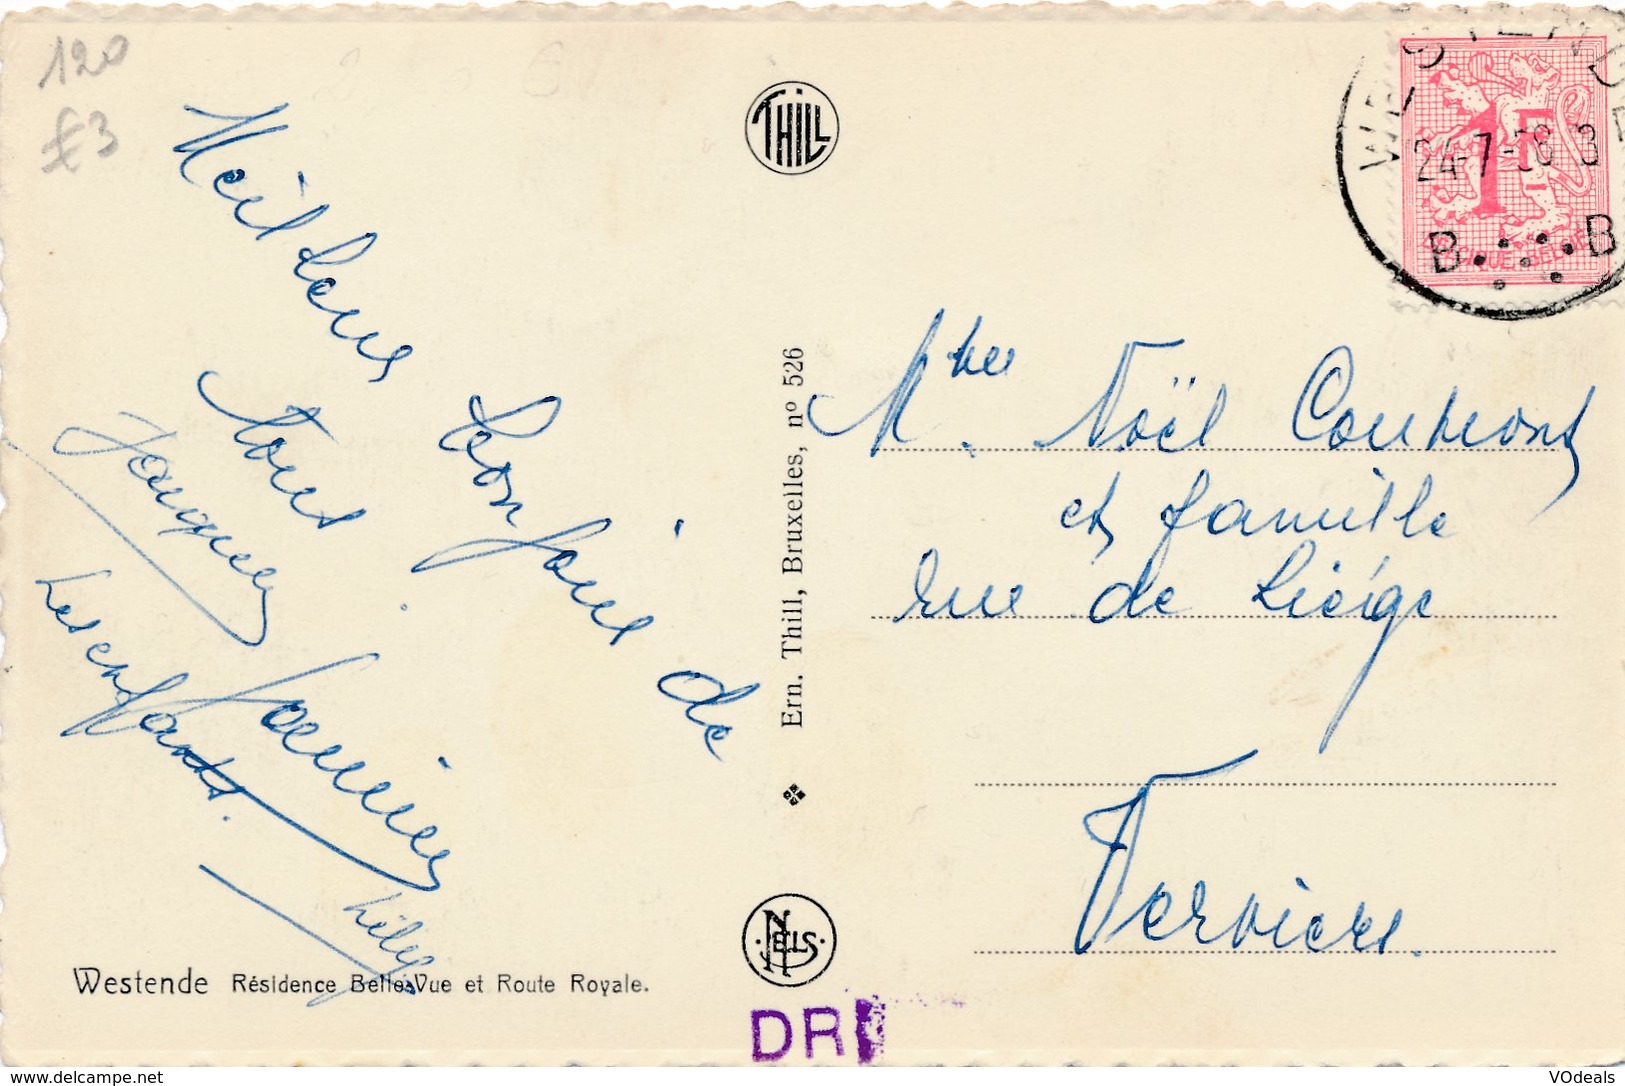 120
€3
THILL
WESTENDE
24-7-58 3
1F
BELGIQUE-BELGIË
B B
Meilleurs bonjours de
tous
Jacques
Les enfants.
Lily
Mme Noël
et famille
rue de Liége
Verviers.
Ern. Thill, Bruxelles, nº 526
NELS
Westende Résidence Belle Vue et Route Royale.
DR
www.delcampe.net
VOdeals